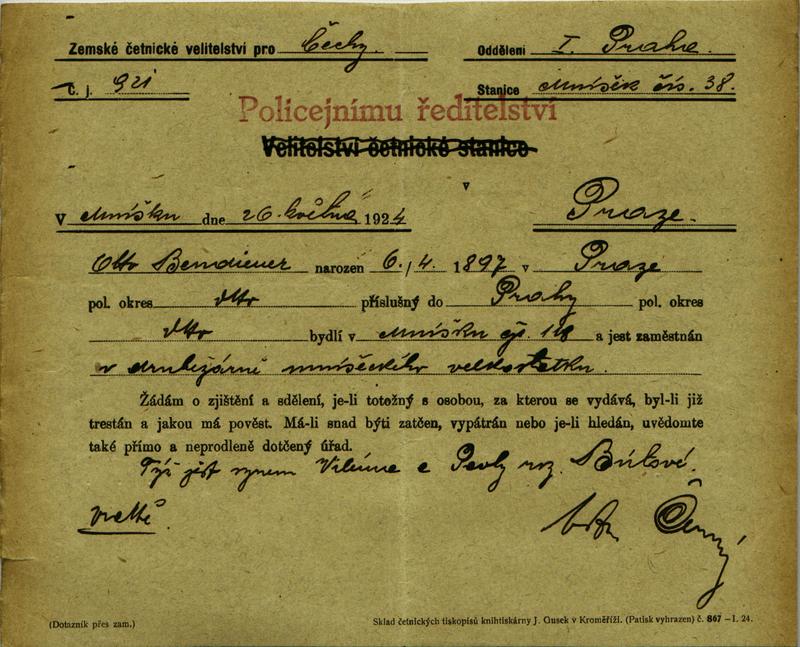 Zemské četnické velitelství pro Čechy. Oddělení I. Praha.
Č. j. 921 Stanice Mníšek čís. 38.
Policejnímu ředitelství
Velitelství četnické stanice
v
V Mníšku dne 26. května 1924 Praze.
Otto Bendiener narozen 6./4. 1897 v Praze
pol. okres dtto příslušný do Prahy pol. okres
dtto bydlí v Mníšku čp. a jest zaměstnán
v drubežárně mníšeckého velkostatku.
Žádám o zjištění a sdělení, je-li totožný s osobou, za kterou se vydává, byl-li již
trestán a jakou má pověst. Má-li snad býti zatčen, vypátrán nebo je-li hledán, uvědomte
také přímo a neprodleně dotčený úřad.
Týž jest synem Viléma a Pavly roz.
Černý
(Dotazník přes zam.) Sklad četnických tiskopisů knihtiskárny J. Gusek v Kroměříži. (Patisk vyhrazen) č. 867 – I. 24.